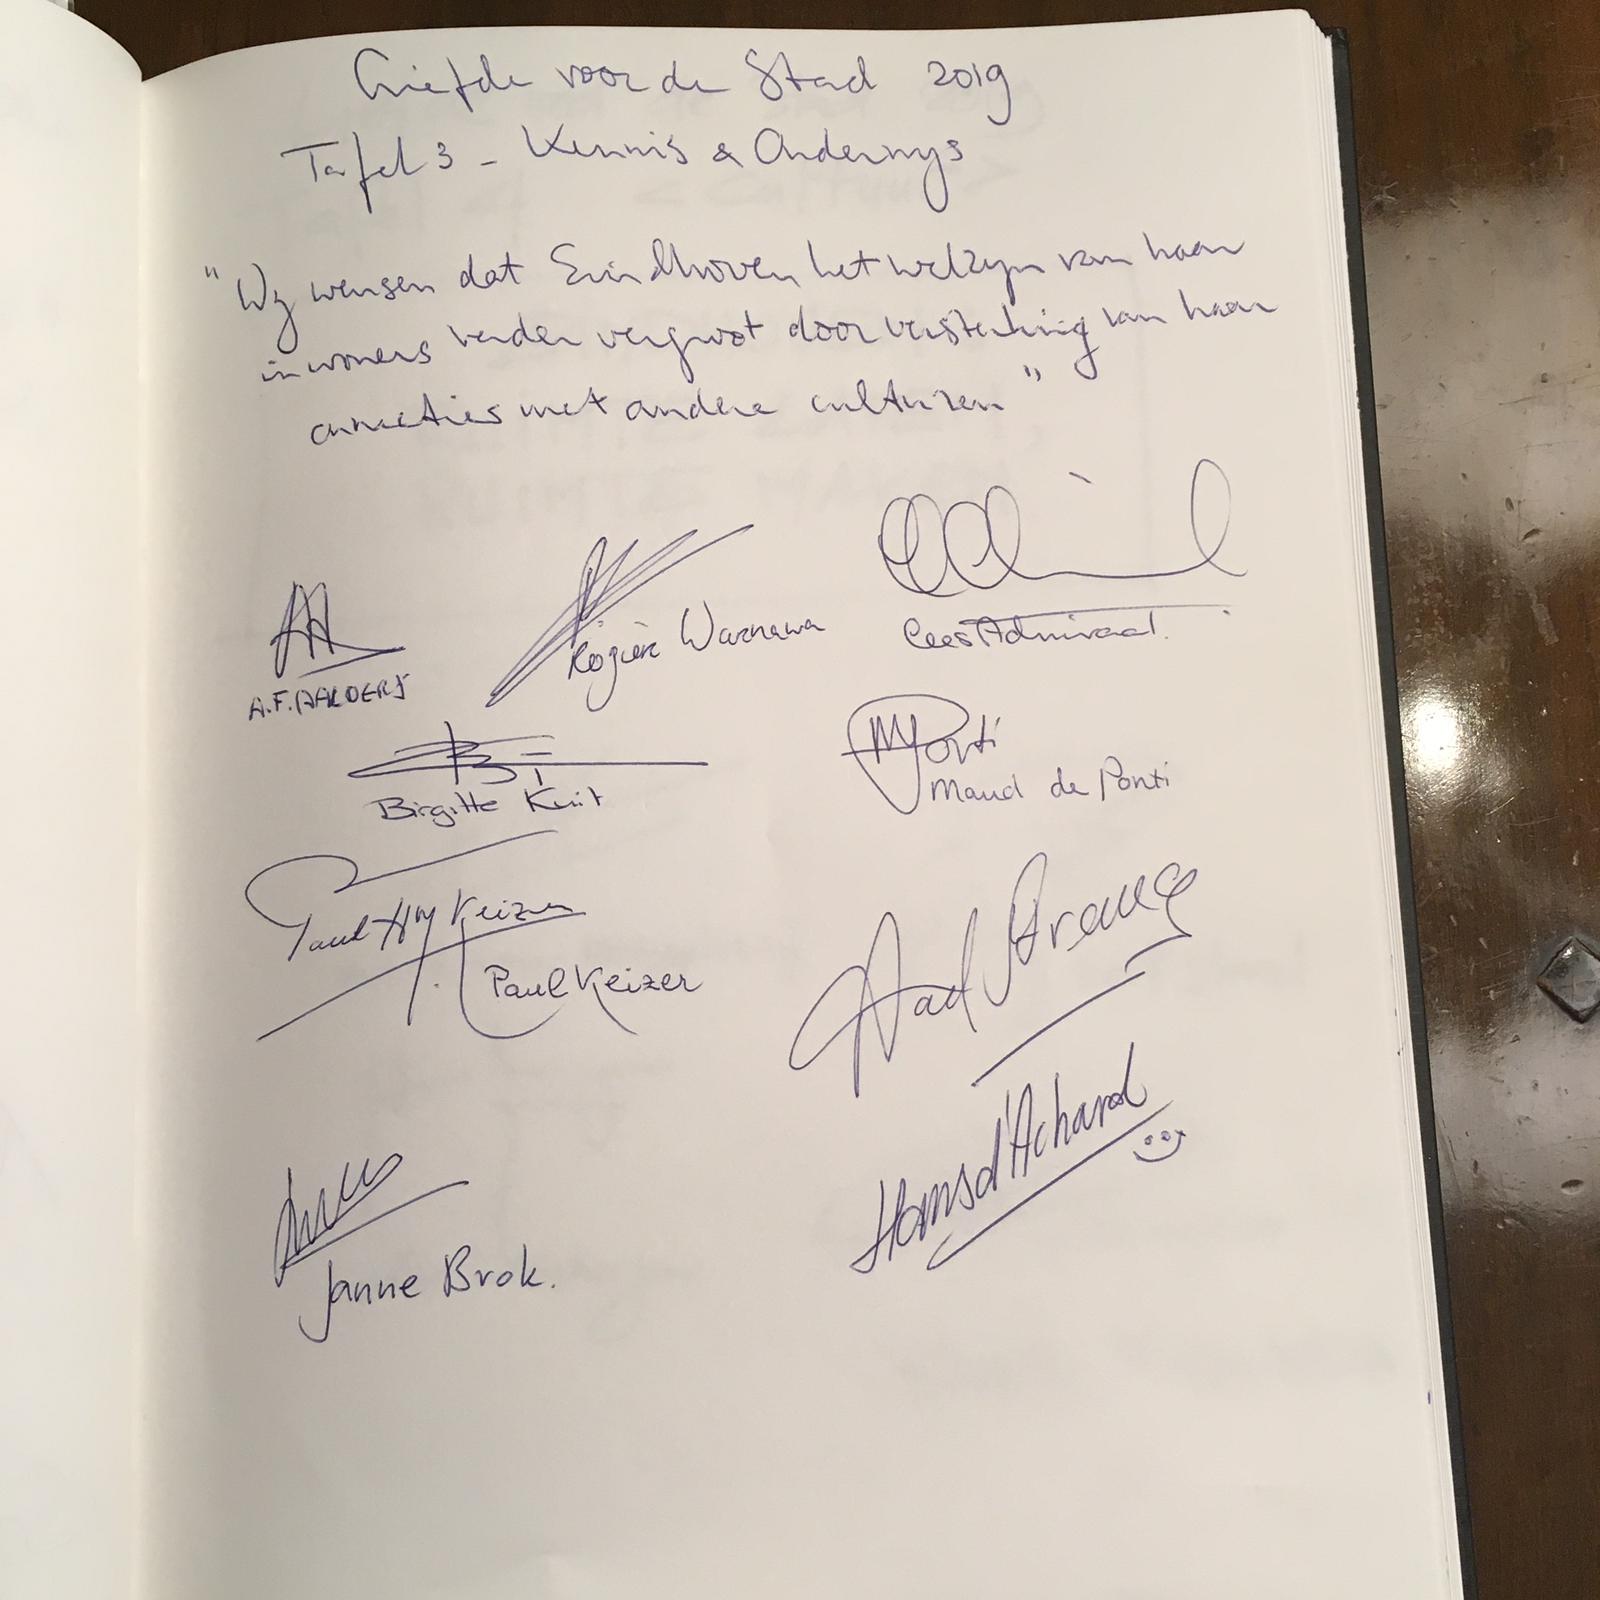 Liefde voor de Stad 2019
Tafel 3 - Kennis & Onderwijs
"Wij wensen dat Eindhoven het welzijn van haar
inwoners verder vergroot door versterking van haar
connecties met andere culturen"
A.F. AALDERS
Rogière Warnawa
Cees Admiraal.
MPonti
Maud de Ponti
Birgitte Kuit
Paul Keizer
Paul Keizer
Aad
Hans d'Achard
Janne Brok.